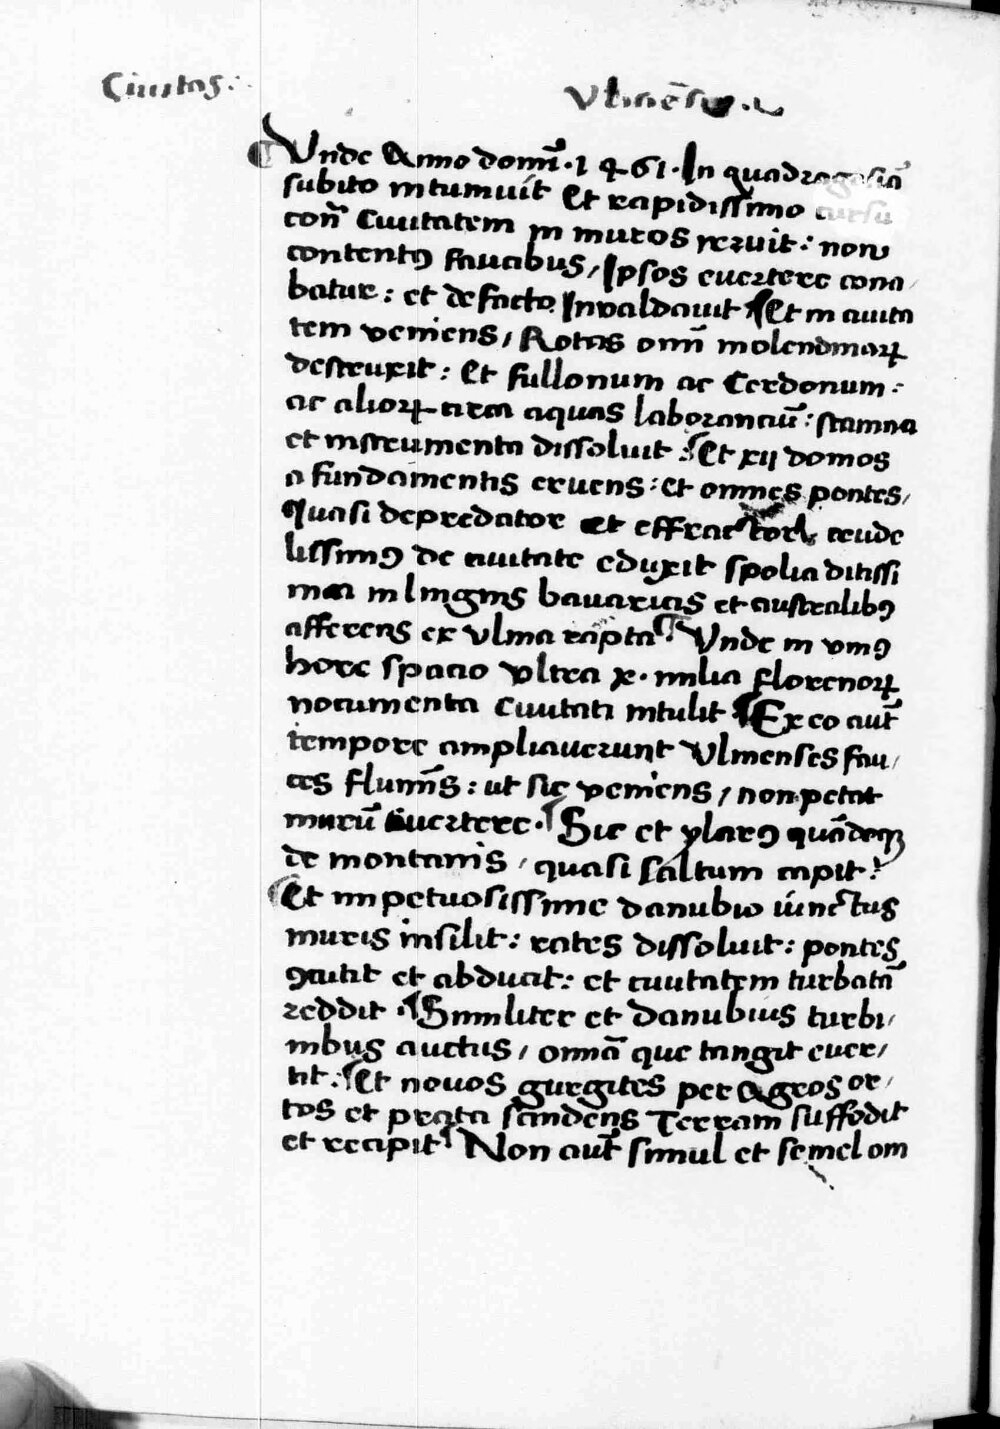 Ciuitas:
Vlmēsis
Vnde Anno domī · 1461 · In quadragesiā
subito intumuit Et rapidissimo cursu
con̄ Ciuitatem in muros reruit: non
contentꝯ faucibus, Ipsos euertere cona,
batur: et de facto Inualdauit Et in ciuita
tem veniens, Rotas om̄ molendinaꝝ
destruxit: Et fullonum ac Cerdonum:
ac alioꝝ circa aquas laboranciū: stamna
et instrumenta dissoluit: Et xij domos
a fundamentis eruens: et omnes pontes,
quasi depredator et effractor crude
lissimꝯ de ciuitate eduxit spolia ditissi
ma in lingnis bauarijs et australibꝯ
afferens ex Vlma rapta Vnde in vniꝯ
hore spacio vltra x · milia florenoꝝ
nocumenta Ciuitati intulit Ex eo aut̄
tempore ampliauerunt Vlmenses fau,
ces flumīs: ut sic veniens, non petat
murū euertere · Sic et ylarꝯ quādoqꝫ
de montanis, quasi saltum capit:
Et impetuosissime danubio iunctus
muris insilit: rates dissoluit: pontes
ꝯcutit et abducit: et ciuitatem turbatā
reddit · Similiter et danubius turbi,
nibus auctus, omnā que tangit euer,
tit: Et nouos gurgites per agros or,
tos et prata scindens Terram suffodit
et recipit Non aut̄ simul et semel om